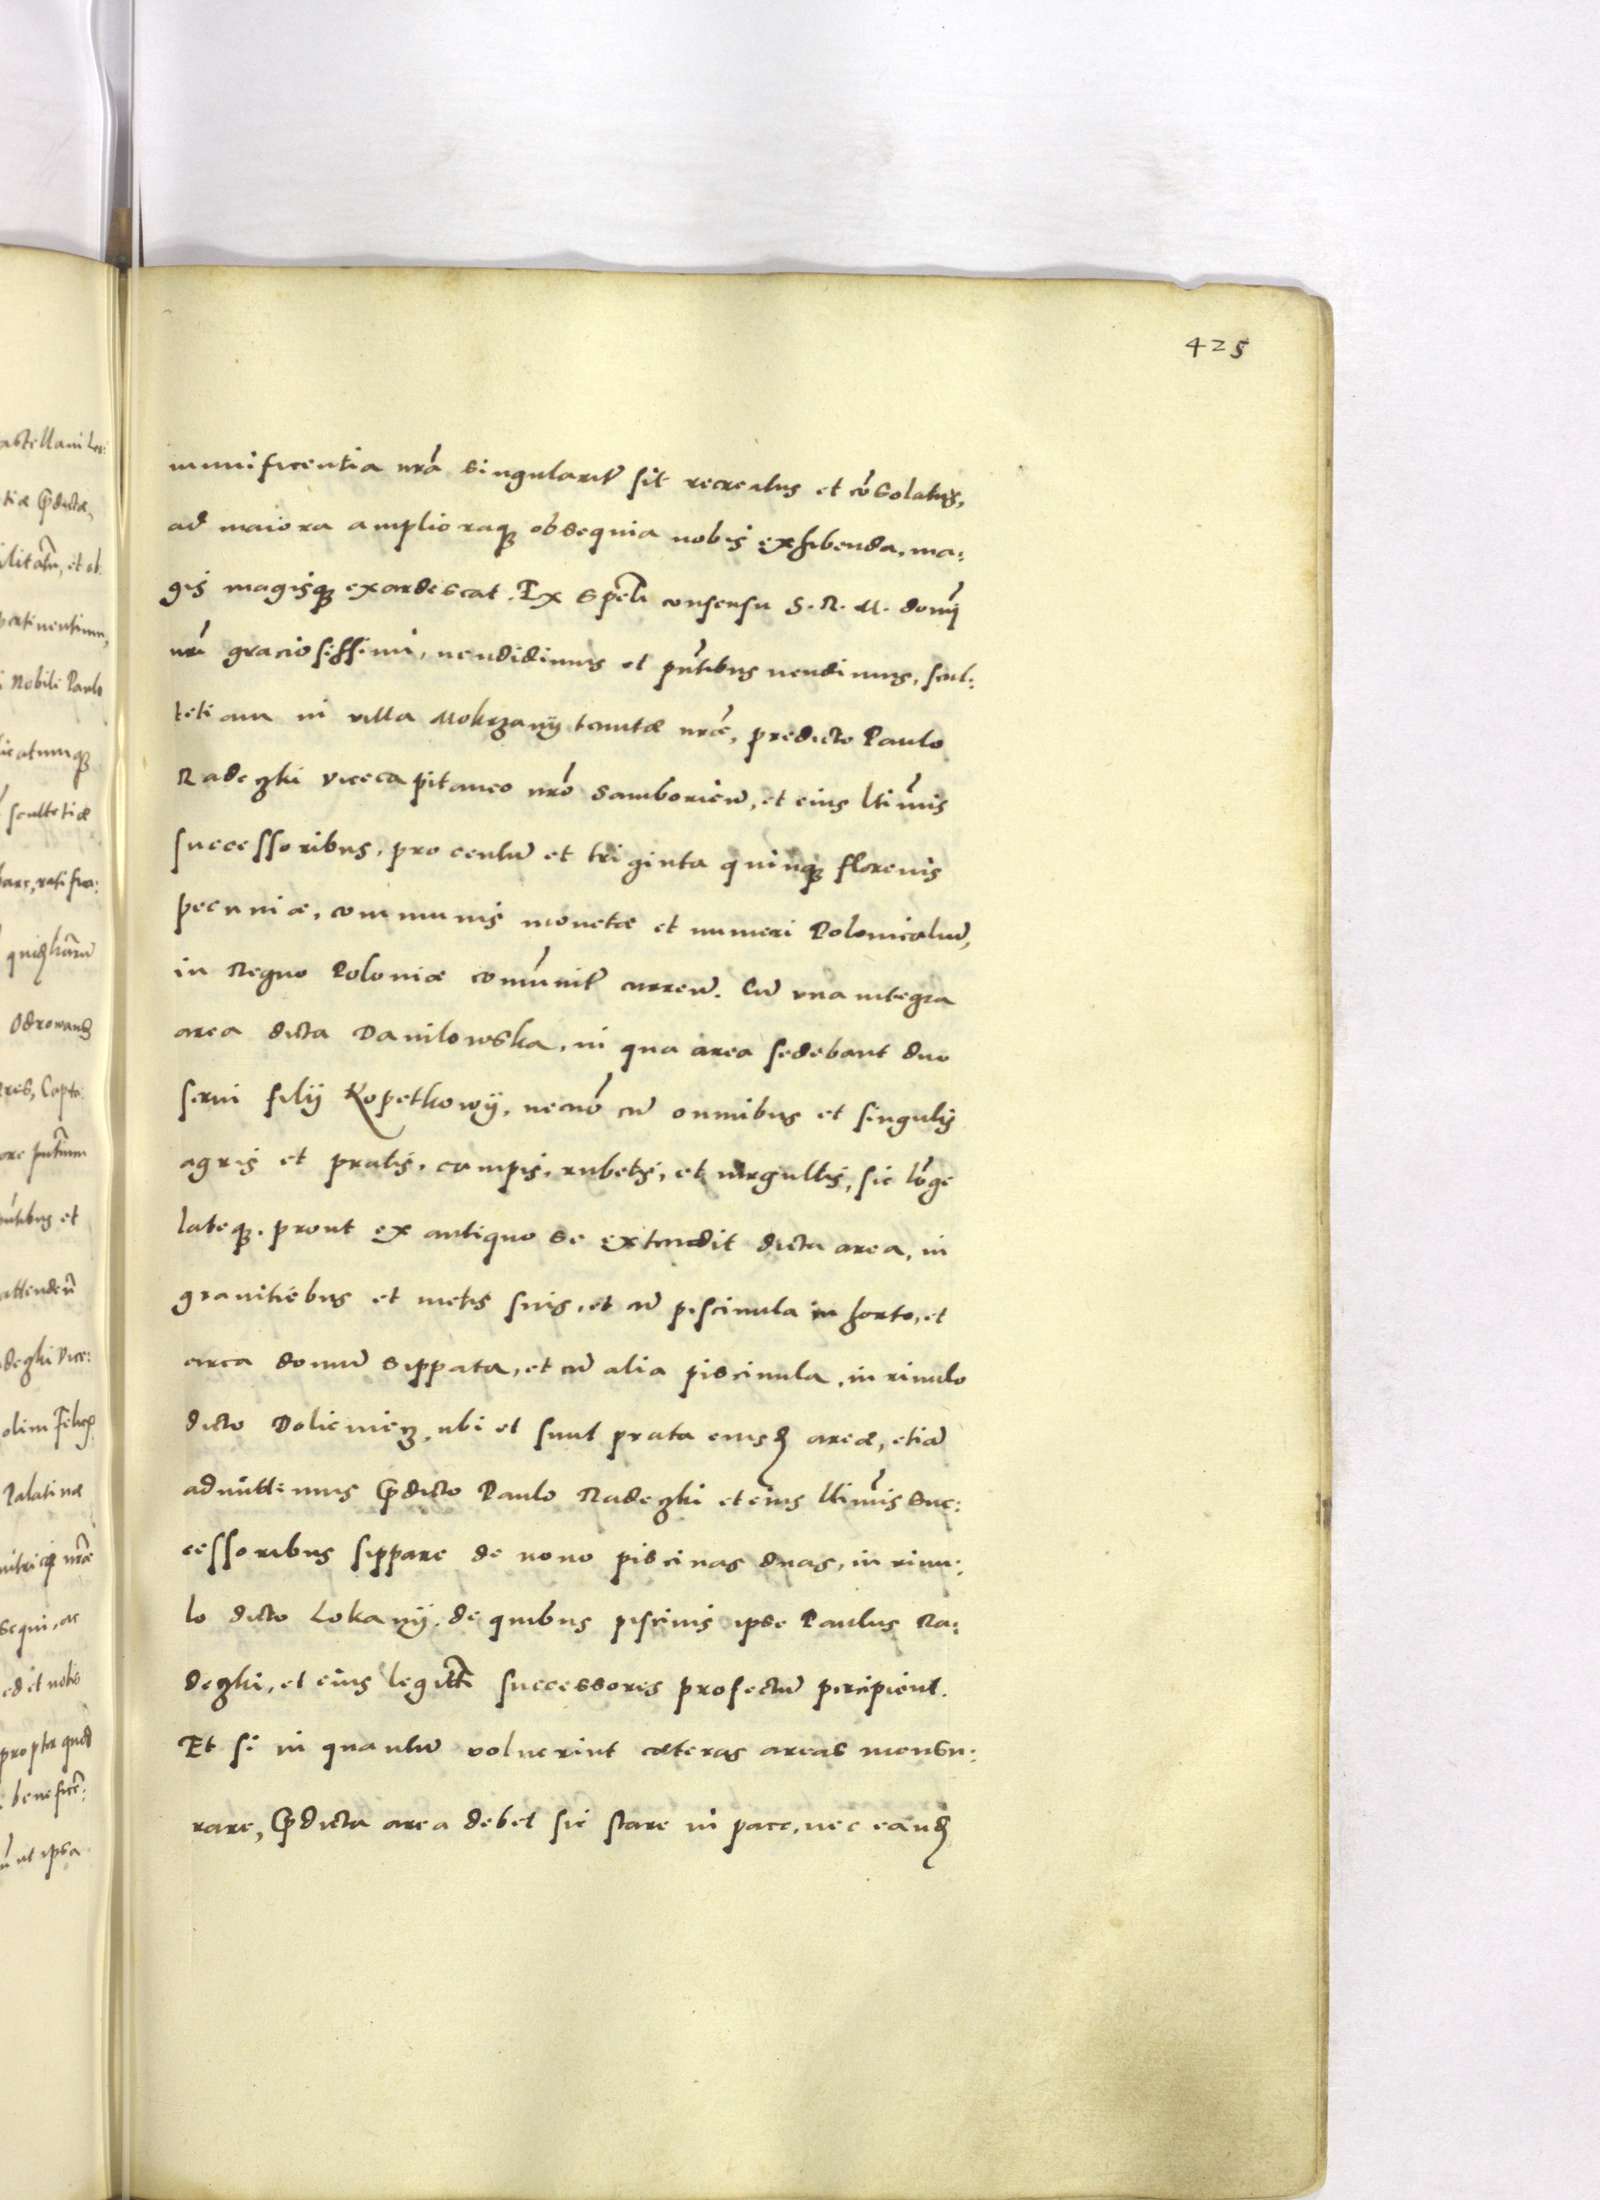 425
munificentia nrã singularitr sit recreatus et cõsolatus,
ad maiora amplioraq₃ obsequia nobis exhibenda, ma:
gis magisq₃ exardescat. Ex speciali consensu S. R. M. domij
nrĩ graciosissimi, uendidimus et pñtibus uendimus, scul:
tetiam in villa Mokrzany tenutæ nræ, predicto Paulo
Radeghi vicecapitaneo nrõ Samborien̄, et eius ltimis
successoribus, pro centũ et triginta quinq₃ florenis
pecuniæ, communis monetæ et numeri Polonicaliũ,
in Regno Poloniæ comũnitr curren̄. Cũ vna integra
area dicta Danilowska, in qua area sedebant duo
serui filij Kopetkowÿ, necnõ cũ omnibus et singulis
agris et pratis, campis, rubetis, et uirgultis, sic lõge
lateq₃, prout ex antiquo se extendit dicta area, in
granitiebus et metis suis, et cũ piscinula in horto, et
circa domũ sippata, et cũ alia piscinula, in riuulo
dicto Dolieniez, ubi et sunt prata eiusd areæ, etiã
admittimus p̃dicto Paulo Radeghi et eius ltimis suc:
cessoribus sippare de nouo piscinas duas, in riuu:
lo dicto Lokanÿ, de quibus piscinis ipse Paulus Ra:
deghi, et eius legitti successores profectũ percipient.
Et si in quantũ voluerint cæteras areas mensu:
rare, p̃dicta area debet sic stare in pace, nec eand